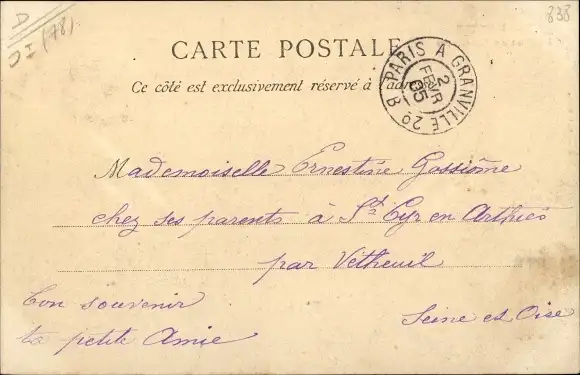 D
OI (78)
838
CARTE POSTALE
Ce côté est exclusivement réservé à l'adre
PARIS A GRANVILLE 2º B
2
FEVR
05
Mademoiselle Ernestine Gossiome
chez ses parents à St Cyr en Arthies
par Vétheuil
Seine et Oise
Bon souvenir
ta petite Amie